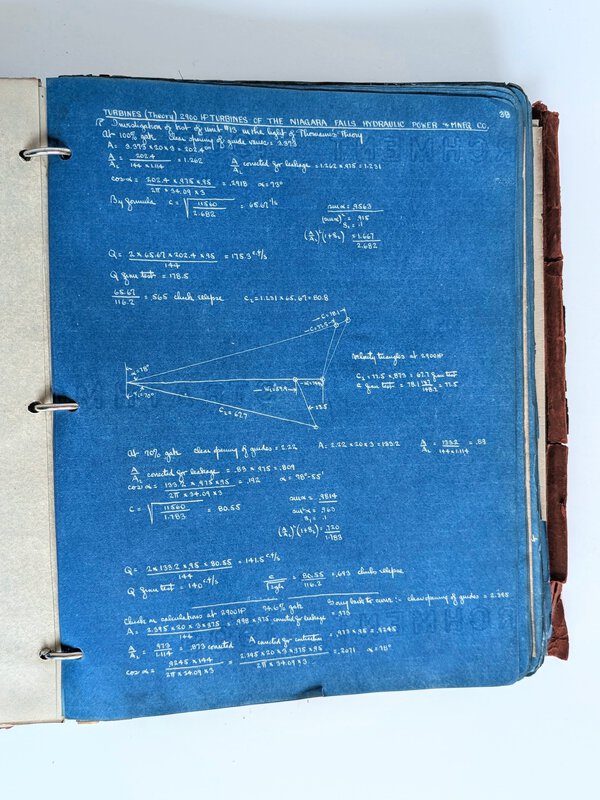 TURBINES (Theory) 2900 HP TURBINES OF THE NIAGARA FALLS HYDRAULIC POWER & MNFG CO. 38
Investigation of test of unit #13 in the light of Thomann's theory
At 100% gate clear opening of guide vanes = 3.373
A = 3.373 × 20 × 3 = 202.4
A/A₂ = 202.4 / 144 × 1.114 = 1.262 A/A₂ corrected for leakage = 1.262 × .975 = 1.231
cos α = 202.4 × .975 × .95 / 2π × 34.09 × 3 = .2918 α = 73°
By formula c = √(11560 / 2.682) = 65.67 '/s
sin α = .9563
(sin α)² = .915
S₁ = .1
(A/A₂)² (1+S₂) = 1.667
2.682
Q = 2 × 65.67 × 202.4 × .95 / 144 = 175.3 c.ft/s
Q from test = 178.5
65.67 / 116.2 = .565 check relapse C₂ = 1.231 × 65.67 = 80.8
C = 78.1
C = 77.5
α = 78°
C₂ = 67.7
13.5
Velocity triangles at 2900 HP
C₂ = 77.5 × .873 = 67.7 from test
C from test = 78.1 = 77.5
At 70% gate clear opening of guides = 2.22 A = 2.22 × 20 × 3 = 133.2 A/A₂ = 133.2 / 144 × 1.114 = .83
A/A₂ corrected for leakage = .83 × .975 = .809
cos α = 133.2 × .975 × .95 / 2π × 34.09 × 3 = .192 α = 78°-55'
sin α = .9814
C = √(11560 / 1.783) = 80.55
sin² α = .963
S₁ = .1
(A/A₂)² (1+S₂) = .720
1.783
Q = 2 × 133.2 × .95 × 80.55 / 144 = 141.5 c.ft/s
Q from test = 140 c.ft/s c/√2gh = 80.55 / 116.2 = .693 checks relapse
Check on calculations at 2900 HP 74.6% gate Going back to curve :- clear opening of guides = 2.395
A = 2.395 × 20 × 3 × .975 / 144 = .998 × .975 corrected for leakage = .973
A/A₂ = .973 / 1.114 = .873 corrected A corrected for contraction = .973 × .95 = .9245
cos α = .9245 × 144 / 2π × 34.09 × 3 = 2.395 × 20 × 3 × .975 × .95 / 2π × 34.09 × 3 = .2071 α = 78°